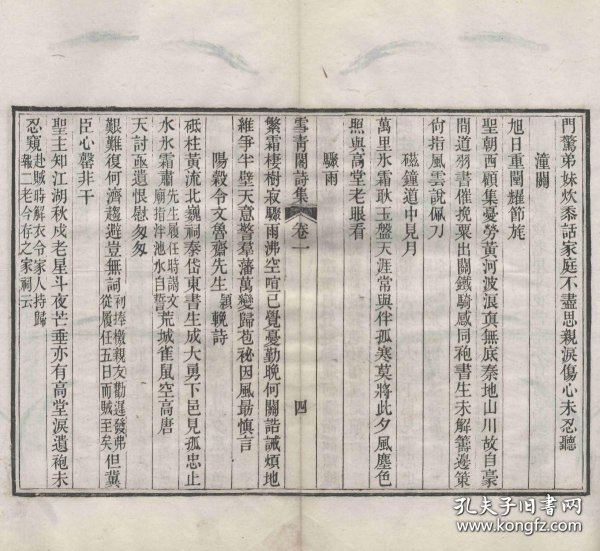 門驚弟妹炊黍話家庭不盡思親淚傷心未忍聽
潼關
旭日重闉耀節旄
聖朝西顧集憂勞黃河波浪真無底秦地山川故自豪
間道羽書催挽粟出關鐵騎感同袍書生未解籌邊策
何指風雲說佩刀
磁鐘道中見月
萬里氷霜耿玉盤天涯常與伴孤寒莫將此夕風塵色
照與高堂老眼看
驟雨
雪青閣詩集 卷一 四
繁霜棲樹寂驟雨沸空喧已覺憂勤晚何關誥誡煩地
維爭半壁天意警羣藩萬變歸苞祕因風最慎言
陽穀令文魯齋先生穎輓詩
砥柱黃流北巍祠泰岱東書生成大勇下邑見孤忠止
水氷霜肅先生履任時謁文廟指泮池水自誓荒城雀鼠空高唐
天討亟遺恨慰匆匆
艱難復何濟趨避豈無詞初捧檄親友勸遲發弗從履任五日而賊至矣但冀
臣心馨非干
聖主知江湖秋戍老星斗夜芒垂亦有高堂淚遺袍未
忍窺赴賊時解衣令家人持歸報二老今存之家祠云
孔夫子旧书网
www.kongfz.com